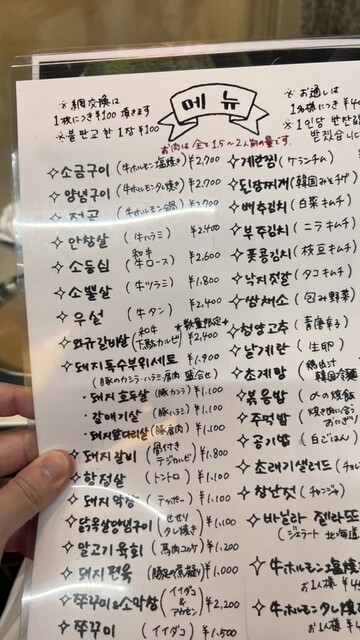 ※網交換は
1枚につき¥100 頂きます
※불판교환 1장 ¥100
메뉴
※お通しは
1名様につき¥4
※1인당 반찬값
받고있습니
お肉は全て1.5〜2人前の量です
✧소금구이 (牛ホルモン塩焼き) ¥2,700
✧양념구이 (牛ホルモンタレ焼き) ¥2,700
✧전골 (牛ホルモン鍋) ¥2,700
✧안창살 (牛ハラミ) ¥2,400
✧소등심 (和牛 牛ロース) ¥2,600
✧소뽈살 (牛ツラミ) ¥1,800
✧우설 (牛タン) ¥2,400
★数量限定★
✧와규갈비살 (和牛 下駄カルビ) ¥2,400
✧돼지특수부위세트 ¥1,900
(豚のカシラ・ハラミ・肩肉 盛合せ)
・돼지호두살 (豚カシラ) ¥1,100
・갈매기살 (豚ハラミ) ¥1,100
・돼지앞다리살 (豚肩肉) ¥1,100
✧돼지갈비 (骨付き テジカルビ) ¥1,800
✧항정살 (トントロ) ¥1,100
✧돼지막창 (テッポー) ¥1,100
✧닭목살양념구이 (せせり タレ焼き) ¥1,100
✧말고기육회 (馬肉ユッケ) ¥1,200
✧돼지편육 (豚足の煮凝り) ¥1,000
✧쭈꾸미&소막창 (イイダコ & アカセン) ¥2,200
✧쭈꾸미 (イイダコ) ¥1,500
✧계란찜 (ケランチム)
✧된장찌개 (韓国みそチゲ)
✧배추김치 (白菜キムチ)
✧부추김치 (ニラキムチ)
✧풋콩김치 (枝豆キムチ)
✧낙지젓갈 (タコキムチ)
✧쌈채소 (包み野菜)
✧청양고추 (青唐辛子)
✧날계란 (生卵)
✧초계면 (鶏出汁 韓国冷麺)
✧볶음밥 (〆の焼飯)
✧주먹밥 (焼き肉に合う おにぎり)
✧공기밥 (白ごはん)
✧초래기샐러드 (チョレ
✧창난젓 (チャンジャ)
✧바닐라 젤라또
(ジェラート 北海道
✧牛ホルモン塩焼き
お1人様 ¥
✧牛ホルモンタレ焼き
お1人様